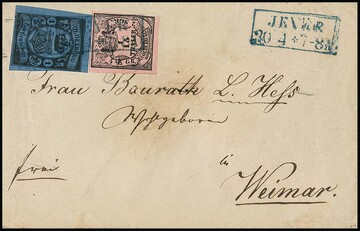 JEVER
20 4 * 7-8N
Frau Baurath L. Hess
Wohlgeboren
frei
in
Weimar.